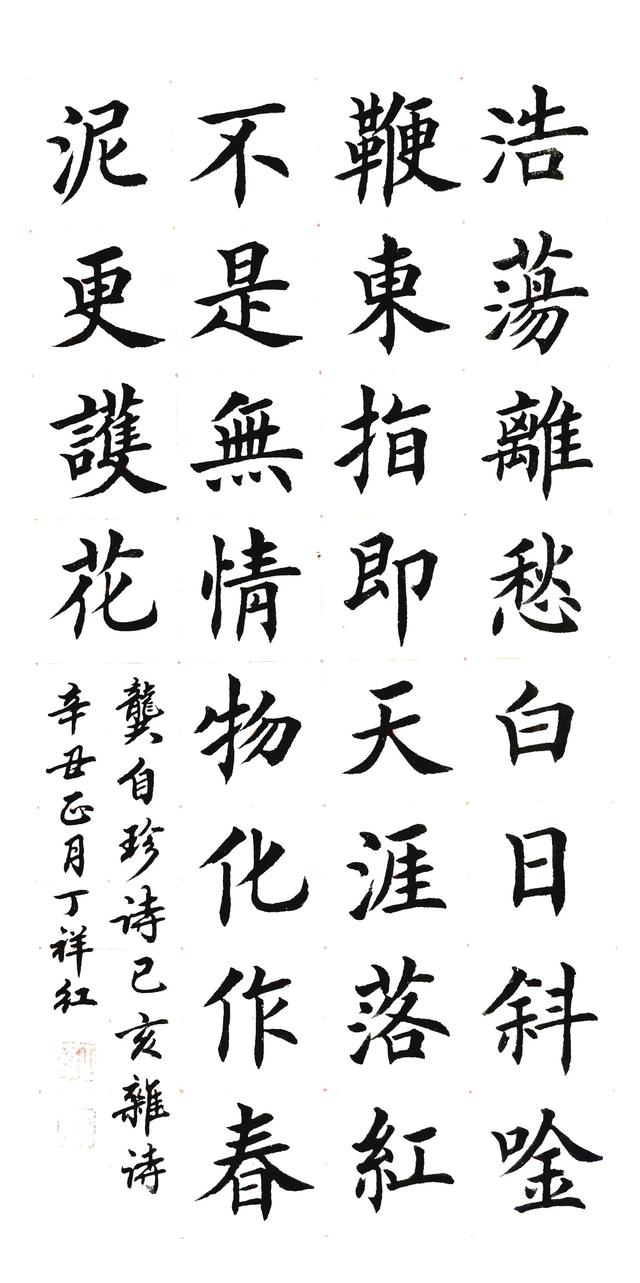 浩蕩離愁白日斜唫
鞭東指即天涯落紅
不是無情物化作春
泥更護花
龔自珍诗己亥雜诗
辛丑正月丁祥红